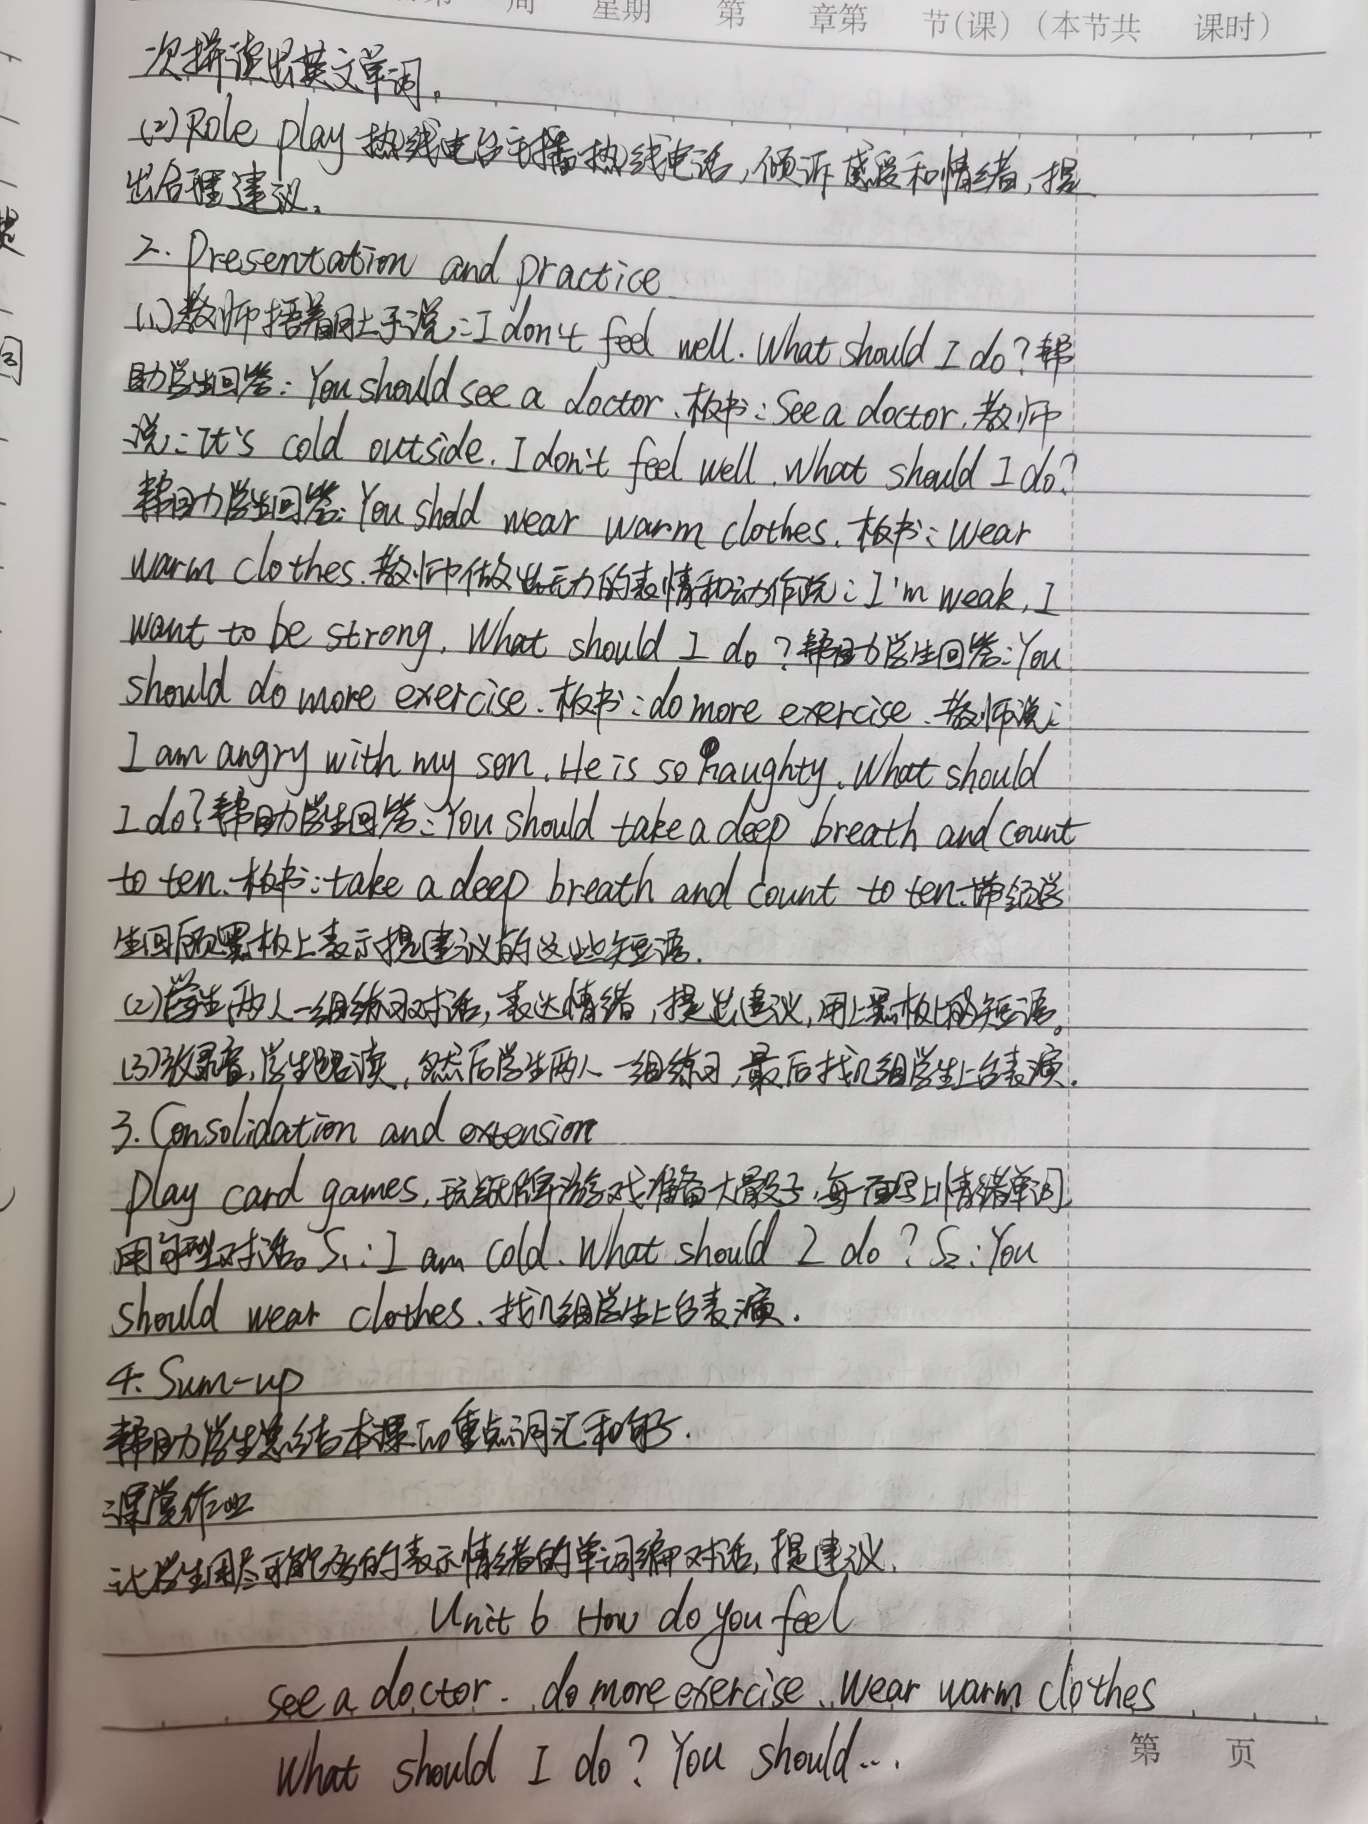 周 星期 第 章第 节(课) (本节共 课时)
次拼读出英文单词。
(2)Role play 热线电台主播热线电话,倾诉感受和情绪,提
出合理建议。
2. Presentation and practice
(1)教师捂着肚子说:I don't feel well. What should I do?帮
助学生回答:You should see a doctor.板书:See a doctor.教师
说:It's cold outside. I don't feel well. What should I do?
帮助学生回答:You shold wear warm clothes.板书:Wear
warm clothes.教师做出无力的表情和动作说:I'm weak, I
want to be strong. What should I do?帮助学生回答:You
should do more exercise.板书:do more exercise.教师说:
I am angry with my son. He is so naughty. What should
I do?帮助学生回答:You should take a deep breath and count
to ten.板书:take a deep breath and count to ten.带领学
生回顾黑板上表示提建议的这些短语.
(2)学生两人一组练习对话,表达情绪,提出建议,用上黑板上的短语。
(3)放录音,学生跟读,然后学生两人一组练习,最后找几组学生上台表演.
3. Consolidation and extension
Play card games,玩纸牌游戏准备大骰子,每一面写上情绪单词,
用句型对话。S1:I am cold. What should I do? S2:You
should wear clothes.找几组学生上台表演.
4. Sum-up
帮助学生总结本课的重点词汇和句子.
课堂作业
让学生用尽可能多的表示情绪的单词编对话,提建议.
Unit 6 How do you feel
see a doctor. do more exercise. Wear warm clothes
What should I do? You should...
第 页